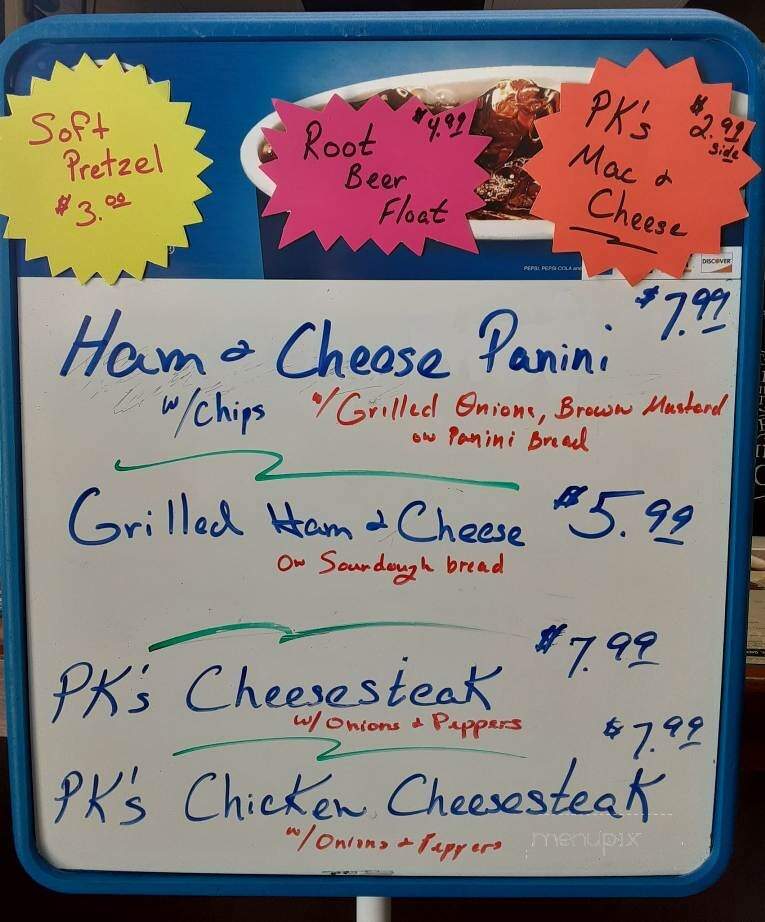 Soft
Pretzel
$3.00
Root $4.99
Beer
Float
PK's $2.99
side
Mac &
Cheese
PEPSI, PEPSI-COLA and
DISCOVER
Ham & Cheese Panini $7.99
w/Chips w/Grilled Onions, Brown Mustard
on Panini Bread
Grilled Ham & Cheese $5.99
on Sourdough bread
PK's Cheesesteak $7.99
w/Onions & Peppers
PK's Chicken Cheesesteak $7.99
w/Onions & Peppers
menupix